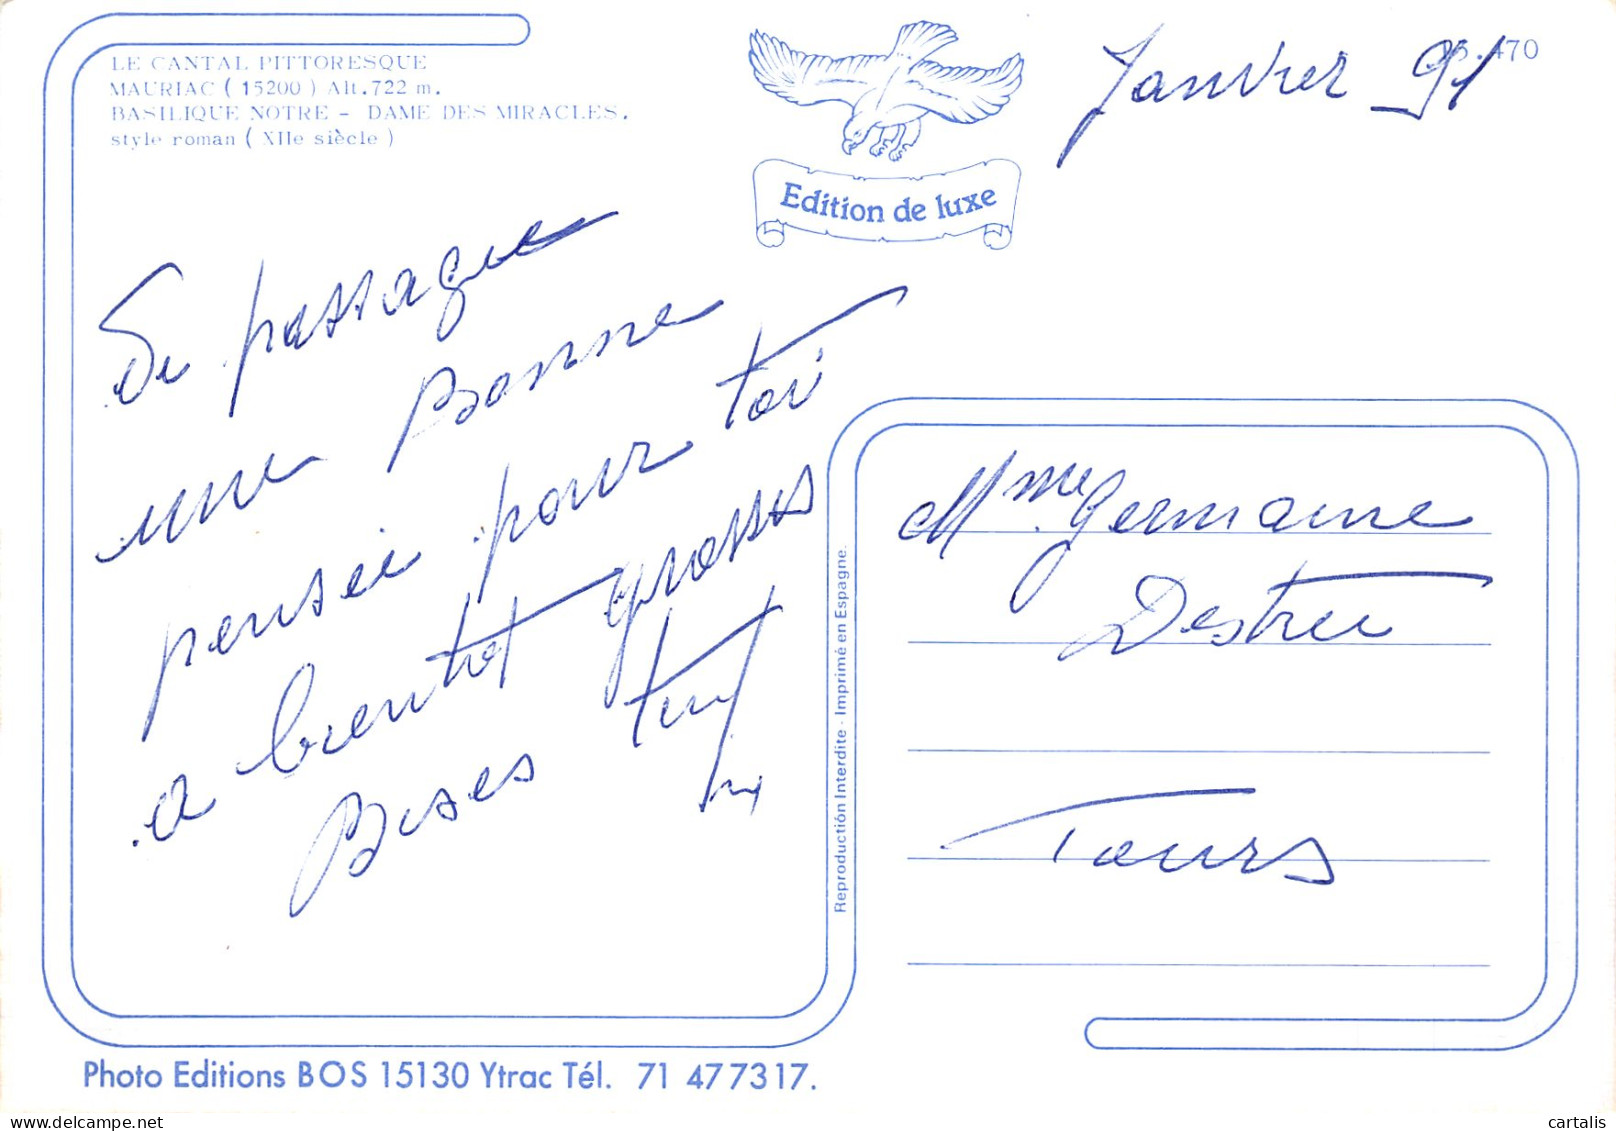 LE CANTAL PITTORESQUE
MAURIAC ( 15200 ) Alt.722 m.
BASILIQUE NOTRE - DAME DES MIRACLES.
style roman ( XIIe siècle )
Edition de luxe
470
Janvier 91
De passage
une Bonne
pensée pour toi
a bientot grosses
Bises
Mme Germaine
Destree
Tours
Reproduction Interdite - Imprimé en Espagne.
Photo Editions BOS 15130 Ytrac Tél. 71 477317.
cartalis